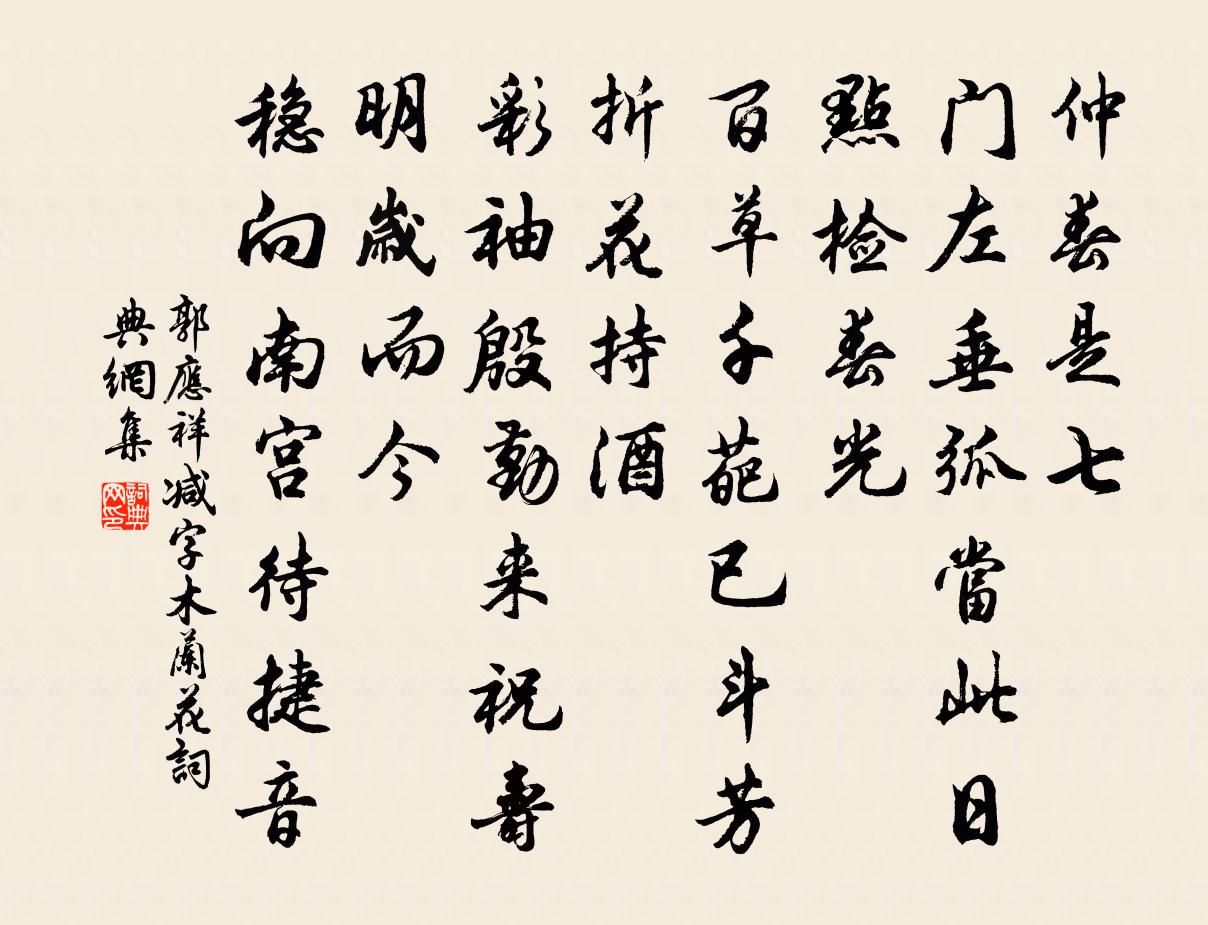 仲春是七
门左垂弧當此日
點检春光
百草千葩已斗芳
折花持酒
彩袖殷勤来祝壽
明嵗而今
稳向南宫待捷音
郭應祥减字木蘭花詞
典網集
詞典网印